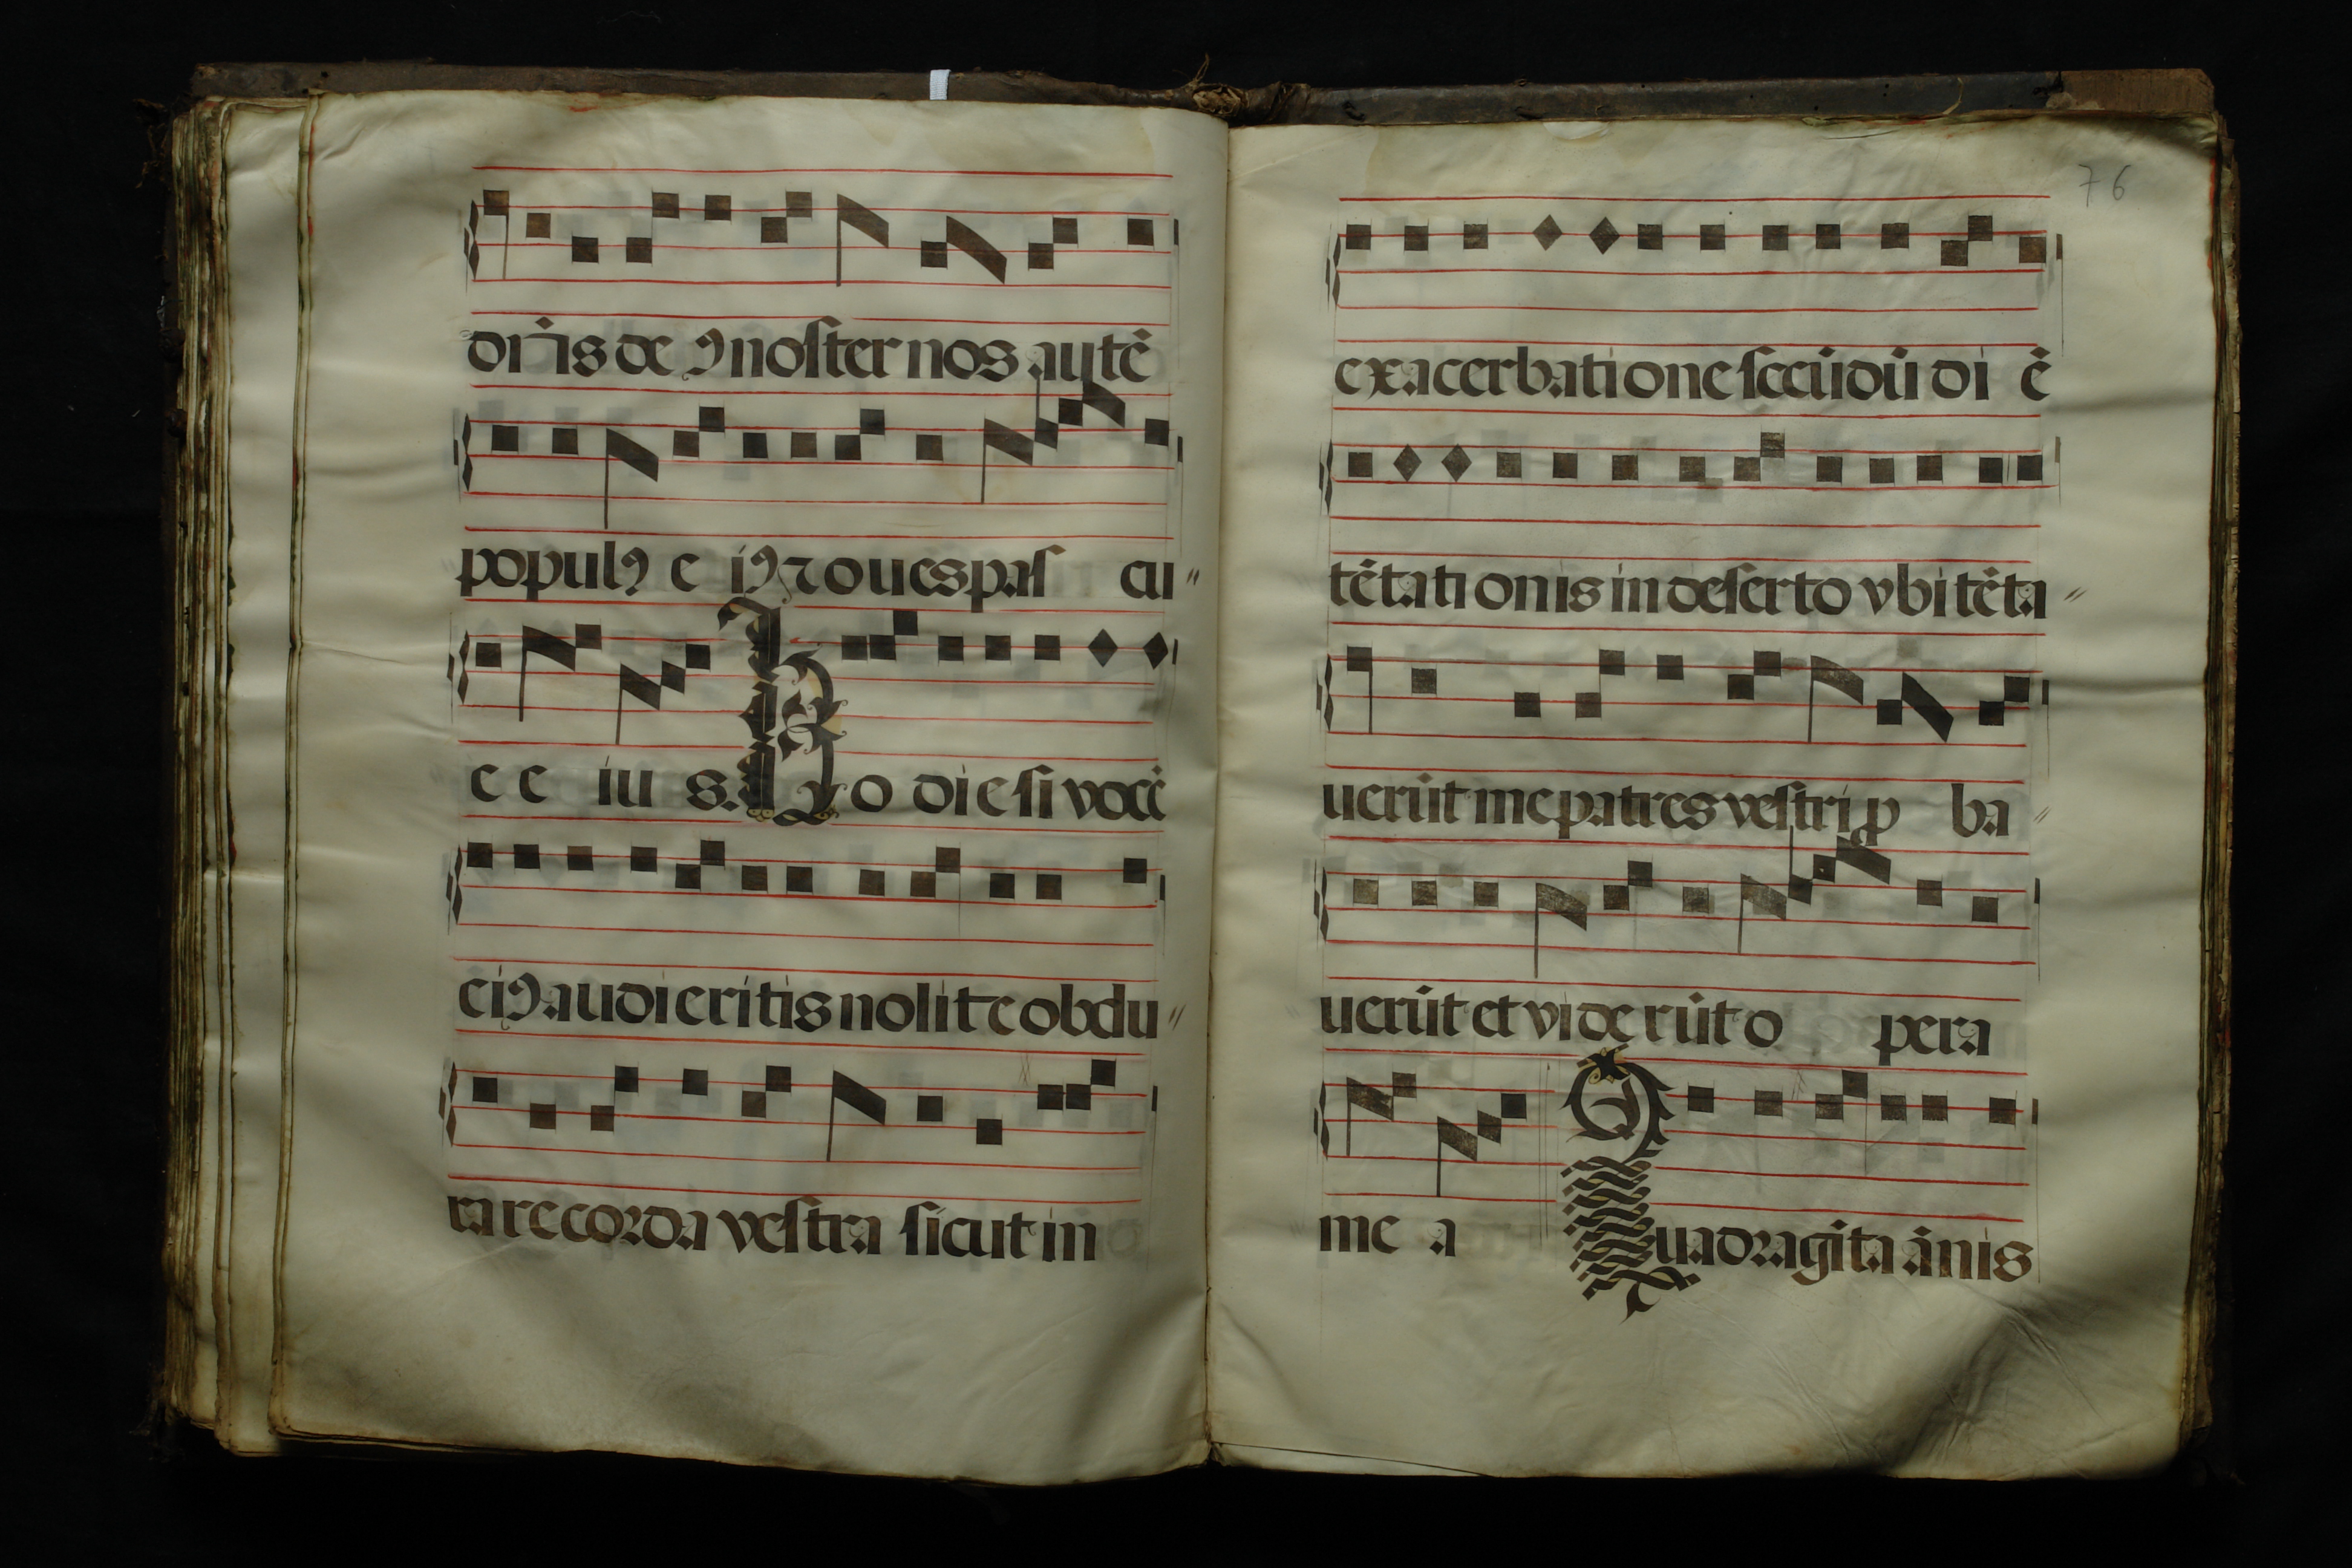 di n̄is de ꝯ noster nos autē
populꝯ e iꝯ ⁊ oues pas cu〃
e e iu s. Ho di e si vocē
eiꝯ audi eritis nolite obdu〃
rare corda vestra sicut in
76
exacerbatione secūdū di ē
tētati onis in deserto vbi tēta〃
uerūt me patres vestri ꝓ ba〃
uerūt et vi de rūt o pera
me a Quadragīta ānis